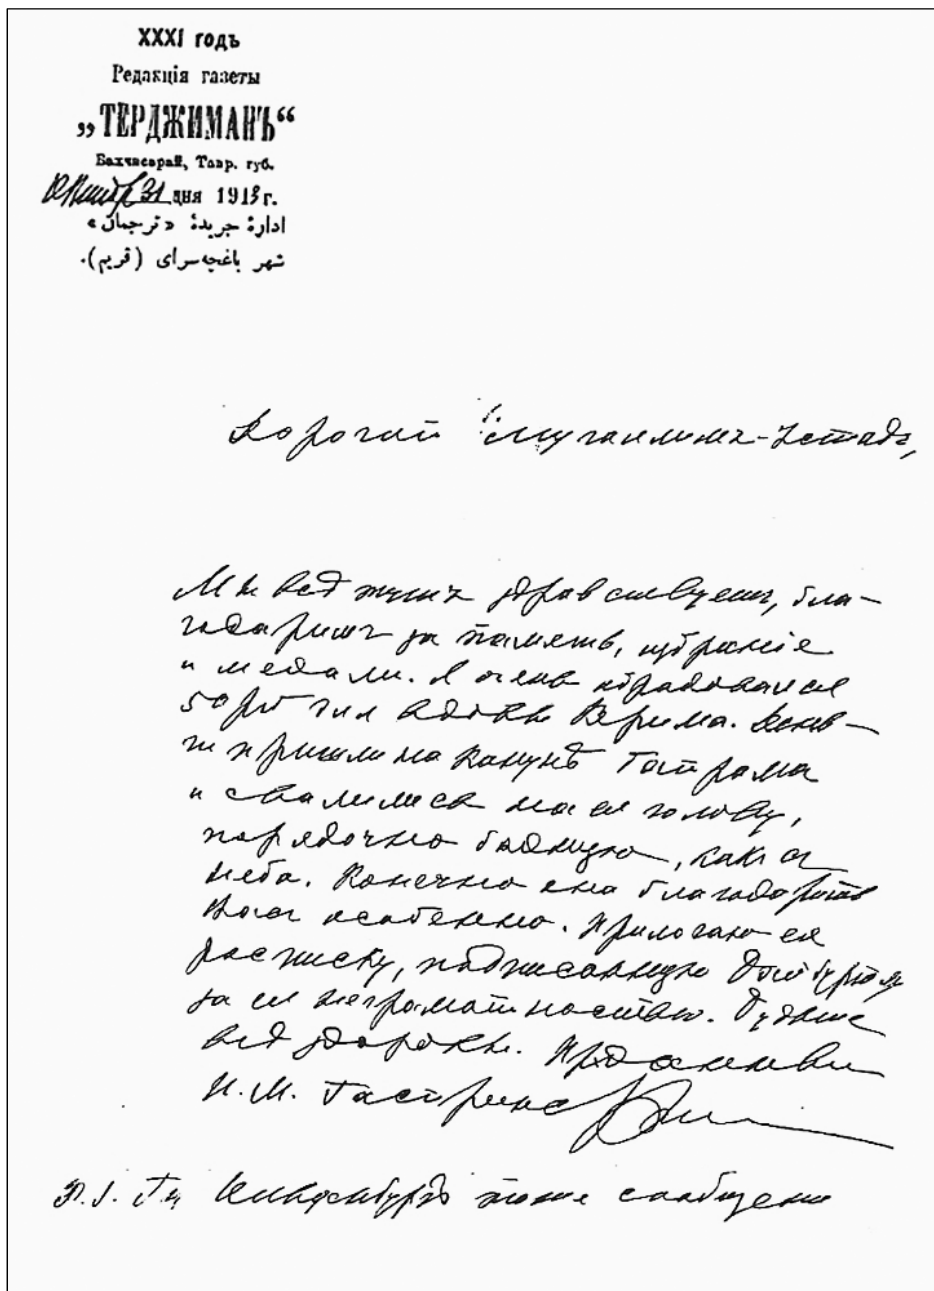 XXXI годъ
Редакція газеты
„ТЕРДЖИМАНЪ“
Бахчисарай, Тавр. губ.
31 дня 1913 г.
ادارۀ جريدۀ « ترجمان »
شهر باغچه‌سرای (قريم).
Дорогой Мугаллимъ-Устадъ,
Мы всѣ здравствуемъ, бла-
годаримъ за память,
и медали. Я очень обрадовался
50 руб для вдовы Керима. День-
ги пришли на канунѣ Байрама
и свалились на ея голову,
порядочно бѣдную, какъ съ
неба. Конечно она благодаритъ
Васъ особенно. Прилагаю ея
расписку, подписанную
за ея неграмотностью. Будьте
всѣ здоровы. Преданный
И. М. Гаспринс
P. S. тоже сообщено